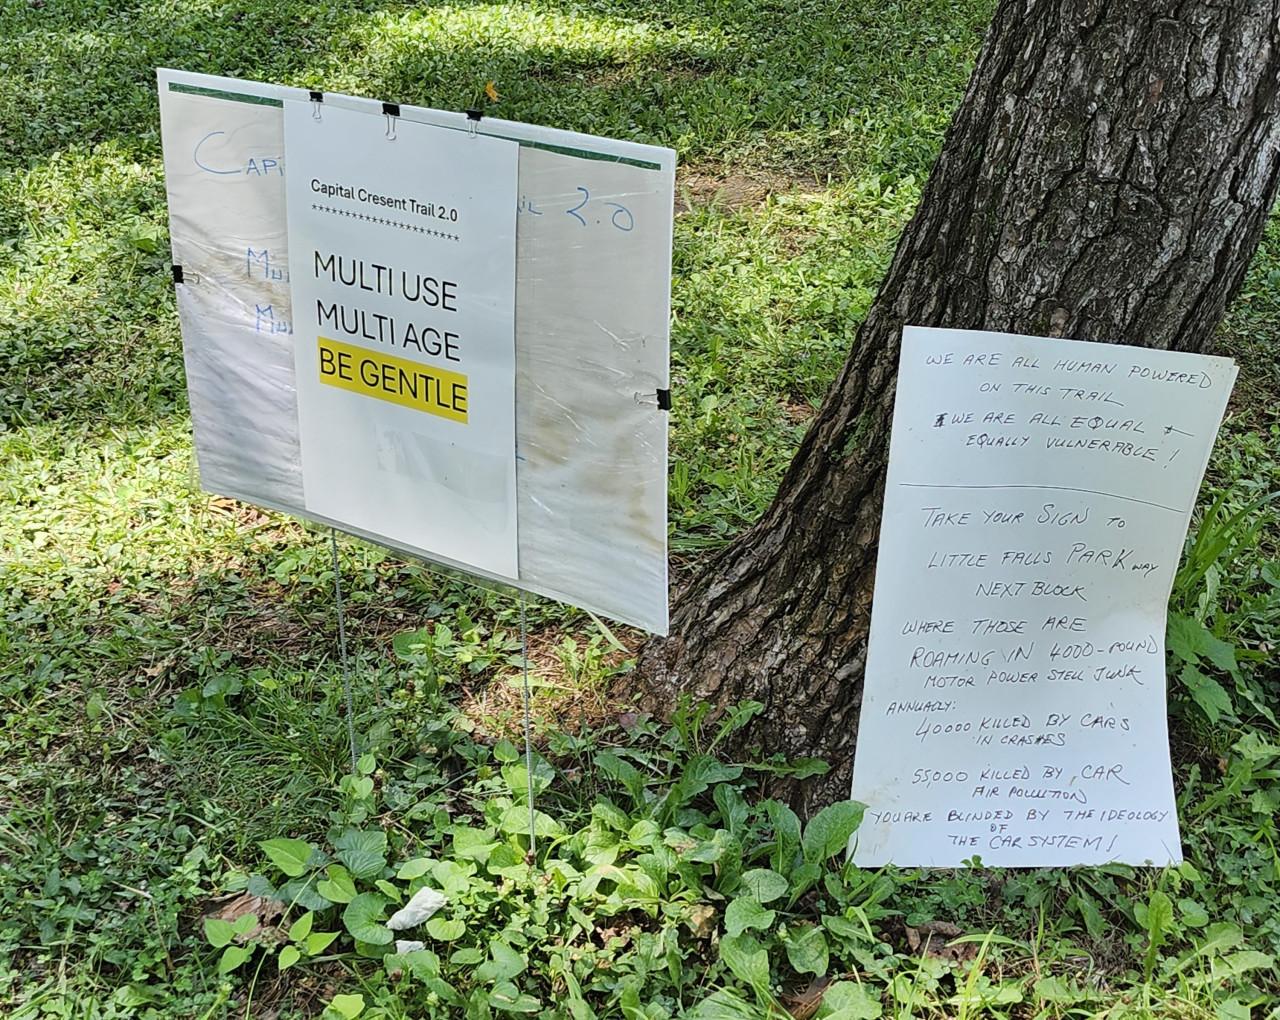 CAPI
IL 2.0
MU
MU
Capital Cresent Trail 2.0
******************
MULTI USE
MULTI AGE
BE GENTLE
WE ARE ALL HUMAN POWERED
ON THIS TRAIL
WE ARE ALL EQUAL
EQUALLY VULNERABLE!
TAKE YOUR SIGN TO
LITTLE FALLS PARKWAY
NEXT BLOCK
WHERE THOSE ARE
ROAMING IN 4000-POUND
MOTOR POWER STELL JUNK
ANNUALLY:
40000 KILLED BY CARS
IN CRASHES
55,000 KILLED BY CAR
AIR POLLUTION
YOU ARE BLINDED BY THE IDEOLOGY
OF
THE CAR SYSTEM!